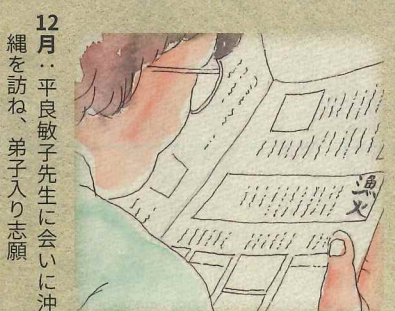 12月：平良敏子先生に会いに沖
縄を訪ね、弟子入り志願
漁火